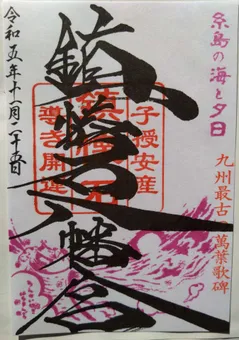 糸島の海と夕日
九州最古 萬葉歌碑
子授安産
鎮懐石
開運
鎮懐石八幡宮
令和五年十一月二十五日